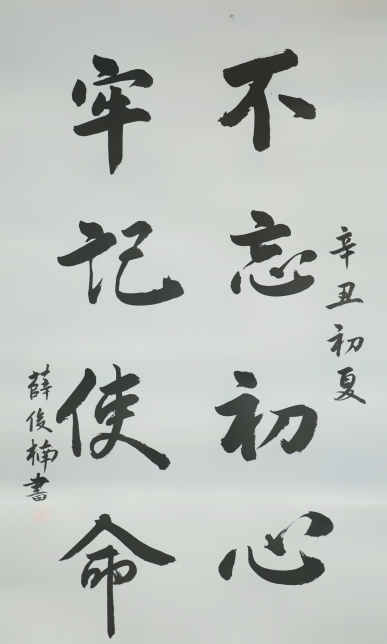 辛丑初夏
不忘初心
牢记使命
薛俊楠書